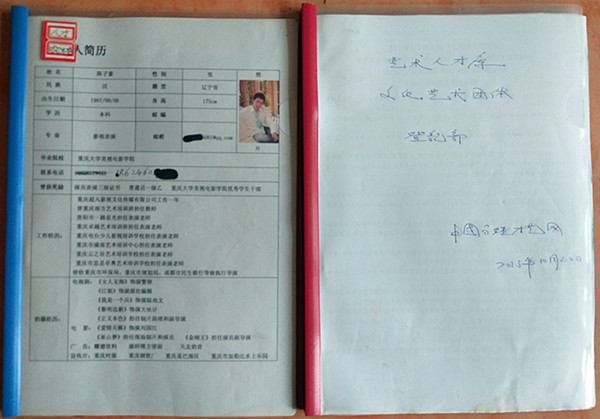 人才
人简历
姓 名 陈子豪 性 别 男 照
民 族 汉 籍 贯 辽宁省
出生日期 1987/09/09 身 高 175cm
学 历 本科 邮 编
专 业 影视表演 邮箱 @qq.com
片
毕业院校 重庆大学美视电影学院
联系电话
曾获奖励 演员表演三级证书 普通话一级乙 重庆大学美视电影学院优秀学生干部
工作经历:
重庆超人影视文化传媒有限公司工作一年
曾重庆南方艺术培训班担任教师
贵阳市一路星光担任表演老师
重庆卓越艺术培训班担任表演老师
重庆电台少儿影视培训学校担任表演老师
重庆市威海艺术培训中心担任表演老师
重庆云之谷艺术培训学校担任表演老师
重庆市忠县卓典艺术培训学校担任表演老师
曾给重庆市环保局、重庆市规划局、成都市民生银行等做执行导演
拍摄经历:
电视剧: 《女人无悔》饰演警察
《江姐》饰演报社编辑
《我是一个兵》饰演陆战文
《黎明追剿》饰演大块计
《正义本色》担任制片助理和副导演
电 影: 《爱情天梯》饰演刘国江
《巫山梦》担任现场制片和演员 《金钢王》担任演员副导演
广 告:
宣传片: 重庆时报 重庆钢铁厂 重庆巫巴南区 重庆市加勒比水上乐园
艺术人才库
文化艺术团体
登记部
中国分类才艺网
2015年10月20日